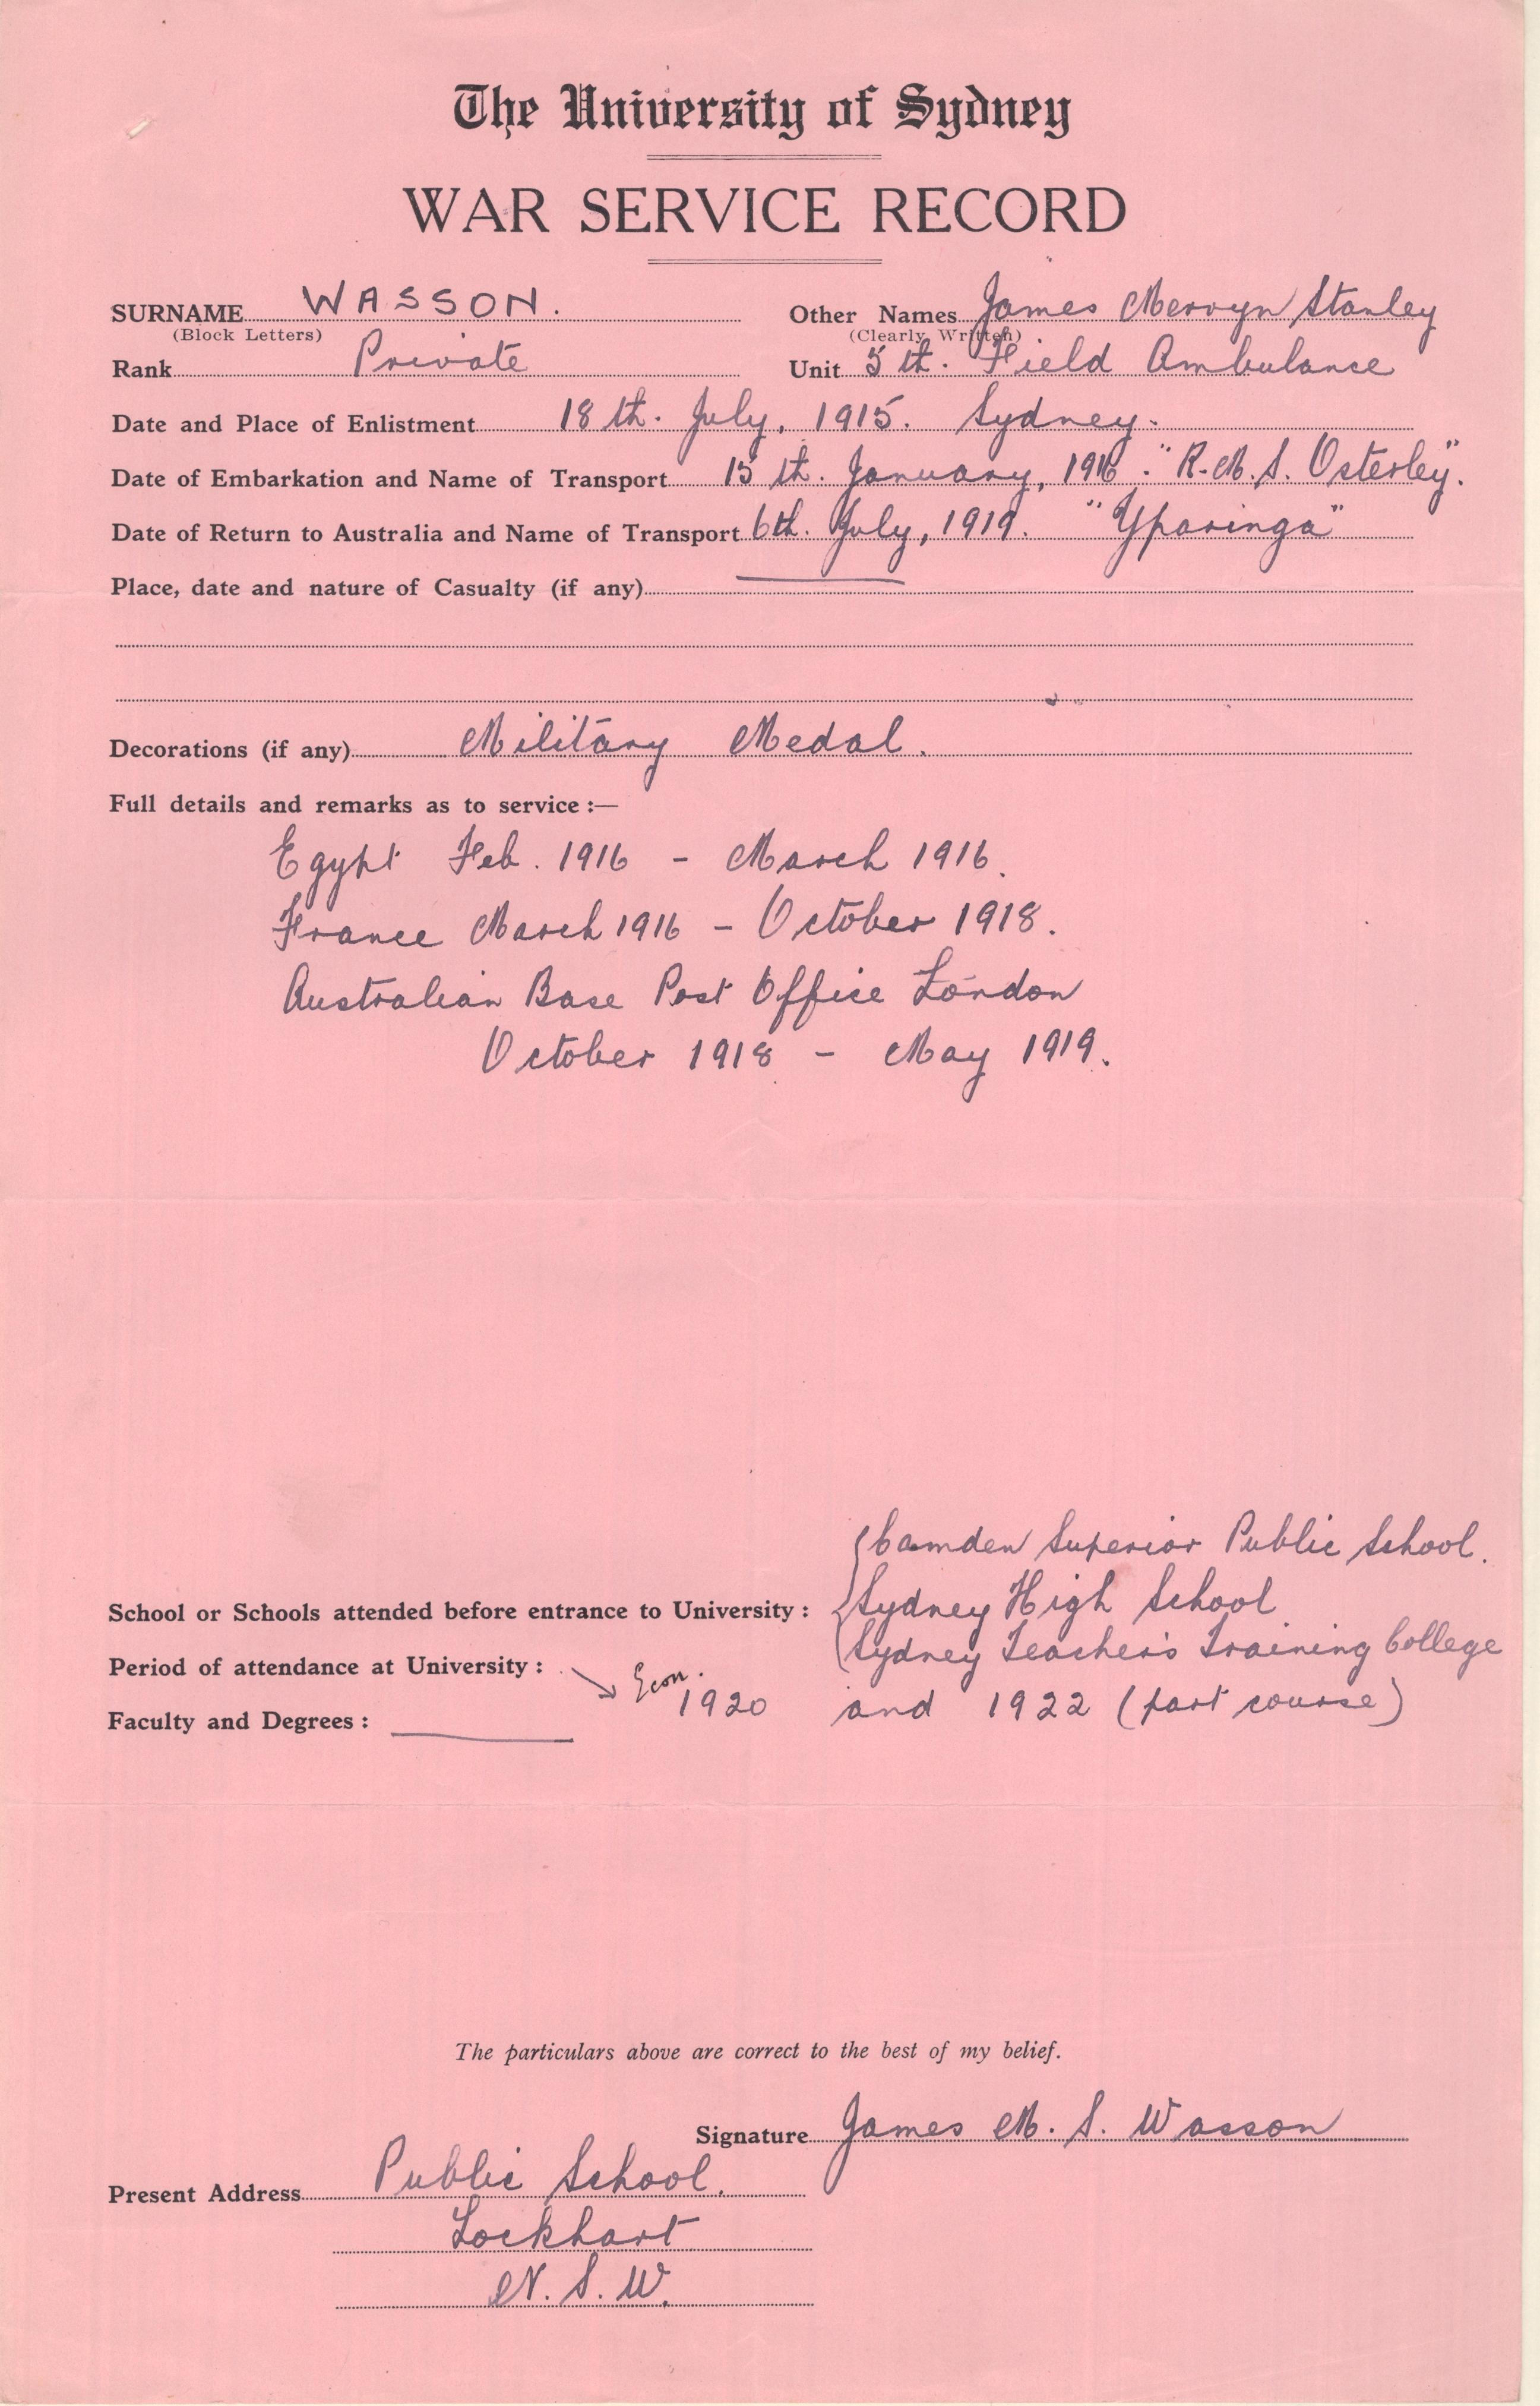 The University of Sydney
WAR SERVICE RECORD
SURNAME WASSON. Other Names James Mervyn Stanley
(Block Letters) (Clearly Written)
Rank Private Unit 5th. Field Ambulance
Date and Place of Enlistment 18th. July, 1915. Sydney.
Date of Embarkation and Name of Transport 15th. January, 1916. "R.M.S. Osterley".
Date of Return to Australia and Name of Transport 6th. July, 1919. "Yparinga"
Place, date and nature of Casualty (if any)
Decorations (if any) Military Medal.
Full details and remarks as to service :—
Egypt Feb. 1916 - March 1916.
France March 1916 - October 1918.
Australian Base Post Office London
October 1918 - May 1919.
Camden Superior Public School.
School or Schools attended before entrance to University : Sydney High School
Sydney Teacher's Training College
Period of attendance at University : Econ.
1920 and 1922 (part course)
Faculty and Degrees :
The particulars above are correct to the best of my belief.
Signature James M. S. Wasson
Present Address Public School.
Lockhart
N. S. W.